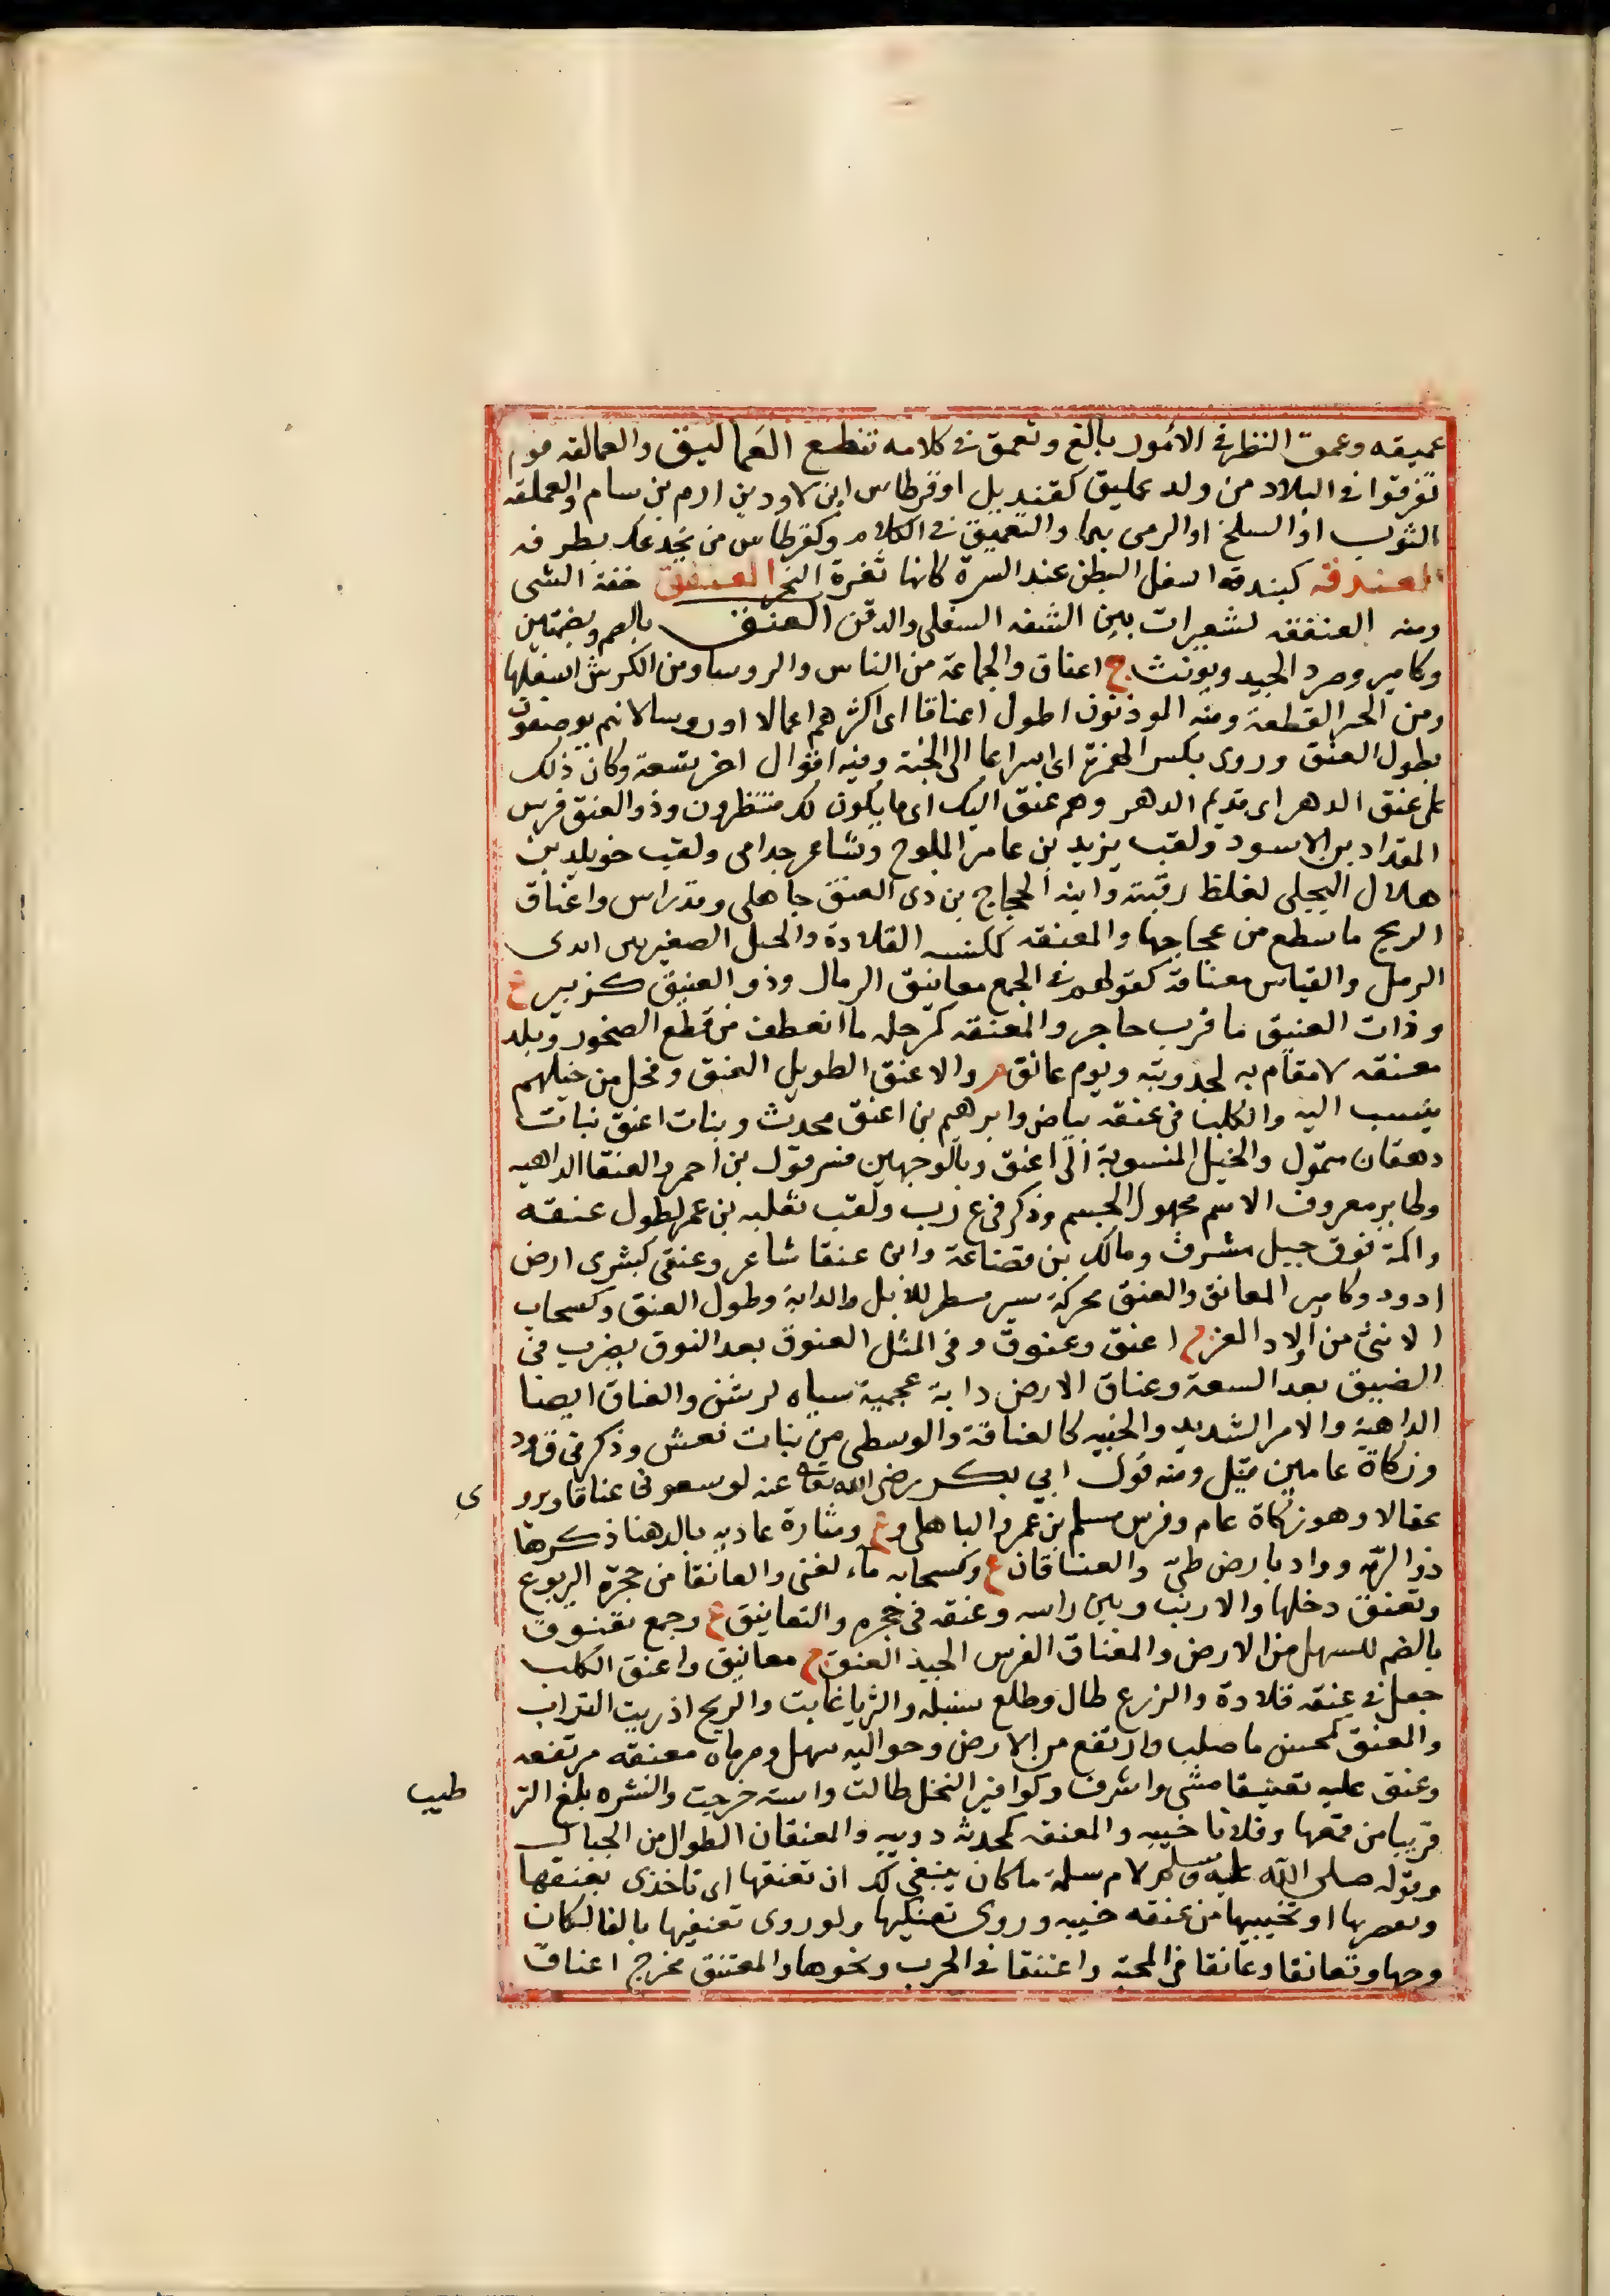 عميقه وعمق النظر في الأمور بالغ وتعمق في كلامه تنطع العَماليق والعمالقه قوم
تفرقوا في البلاد من ولد عمليق كقنديل او قرطاس ابن لاود بن ارم بن سام والعملقه
الثوب او السلخ او الرمى بها والتعميق في الكلام وكقرطاس من يخدعك بطرفه
العندقه كبندقه اسفل البطن عند السرة كانها ثغرة النحر العنفق خفة الشى
ومنه العنفقه لشعيرات بين الشفه السفلى والدقن العنق بالضم وبضمتين
وكامير وصرد الجيد ويونث ج اعناق والجماعة من الناس والروسا ومن الكرش اسفلها
ومن الخبز القطعة ومنه الموذنون اطول اعناقا اى اكثرهم اعمالا اوروسا لانهم يوصفون
بطول العنق وروى بكسر الهمزة اى اسراعا الى الجنة وفيه اقوال اخر تسعة وكان ذلك
على عنق الدهر اى قديم الدهر وهم عنق اليك اى مايلون لك منتظرون وذو العنق فرس
المقداد بن الاسود ولقب يزيد بن عامر الملوح وشاعر جذامى ولقب خويلد بن
هلال البجلى لغلظ رقبته وابنه الحجاج بن ذى العنق جاهلى وقد راس واعناق
الريح ما سطع من عجاجها والمعنقه ككنسه القلادة والحبل الصغير بين ايدى
الرمل والقياس معناقة كقولهم في الجمع معانيق الرمال وذو العنيق كزبير ع
وذات العنيق ما قرب حاجر والمعنقه كمرحله ما انعطف من قطع الصخور وبلد
معنقه لا مقام به لجدوبته ويوم عانق م والاعنق الطويل العنق وفحل من خيلهم
ينسب اليه والكلب في عنقه بياض وابرهيم بن اعنق محدث وبنات اعنق بنات
دهقان متمول والخيل المنسوبة الى اعنق وبالوجهين فسر قول بن احمر والعنقا الداهيه
وطاير معروف الاسم مجهول الجسم وذكر في ع ر ب ولقب ثعلبه بن عمرو لطول عنقه
واكمة فوق جبل مشرف ومالك بن قضاعة وابن عنقا شاعر وعنقى كبشرى ارض
او واد وكامير المعانق والعنق محركة سير مسطر للابل والدابة وطول العنق وكسحاب
الانثى من اولاد المعز ج اعنق وعنوق وفي المثل العنوق بعد النوق يضرب في
الضيق بعد السعة وعناق الارض دابة عجمية سياه كوش والعناق ايضا
الداهية والامر الشديد والخيبه كالعناقة والوسطى من بنات نعش وذكر في ق و د
وزكاة عامين قيل ومنه قول ابي بكر رضى الله تعالى عنه لو منعوني عناقا ويروى
عقالا وهو زكاة عام وفرس مسلم بن عمرو الباهلى وع ومنارة عاديه بالدهنا ذكرها
ذو الرمه وواد بارض طي والعناقان ع وكسحابه ماء لغنى والعانقا من جحرة اليربوع
وتعنق دخلها والارنب دس راسه وعنقه في جحره والتعانيق ع وجمع تعنوق
بالضم للسهل من الارض والمعناق الفرس الجيد العنق ج معانيق واعنق الكلب
جعل في عنقه قلادة والزرع طال وطلع سنبله والثريا غابت والريح اذريت التراب
والمعنق كمحسن ما صلب وارتفع من الارض وحواليه سهل ومرباة معنقه مرتفعه
وعنق عليه تعنيقا مشى واشرف وكوافير النخل طالت واسته خرجت والبسره بلغ الترطيب
قريبا من قمعها وفلانا خيبه والمعنقه كمحدثه دويبه والمعنقان الطوال من الجبال
وقوله صلى الله عليه وسلم لام سلمة ما كان ينبغي لك ان تعنقيها اى تاخذى بعنقها
وتعصريها او تخيبيها من عنقه خيبه وروى تعنكيها ولو روى تعنفيها بالفا لكان
وجها وتعانقا وعانقا في المحبة واعتنقا في الحرب ونحوها والمعتنق مخرج اعناق